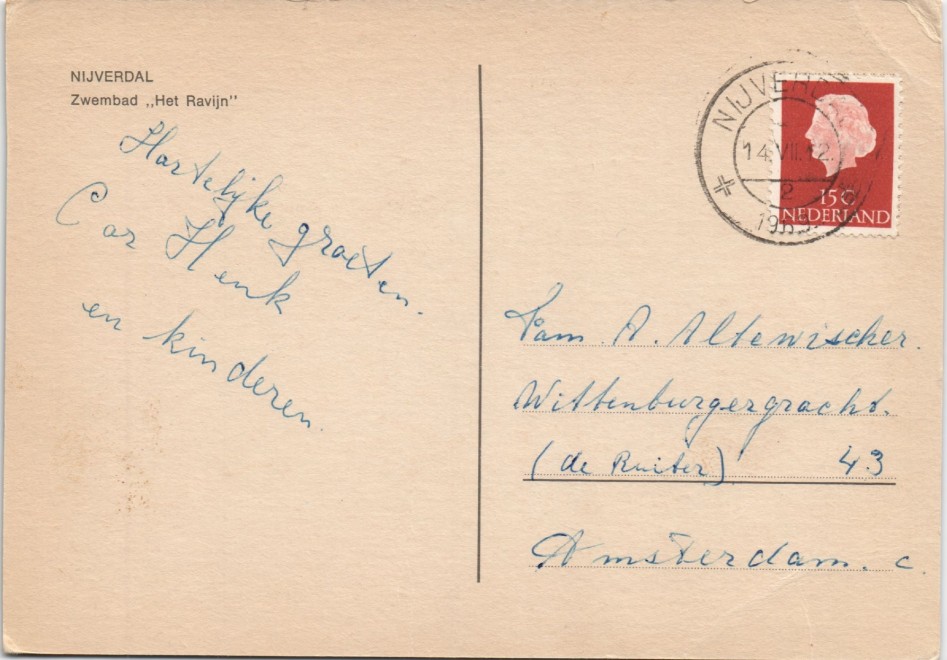 NIJVERDAL
Zwembad „Het Ravijn”
Hartelijke groeten.
Cor Henk
en kinderen.
NIJVERD
14.VII.12.
2
1965.
15 C
NEDERLAND
Fam. A. Altewischer.
Wittenburgergracht.
(de Ruiter) 43
Amsterdam. c.